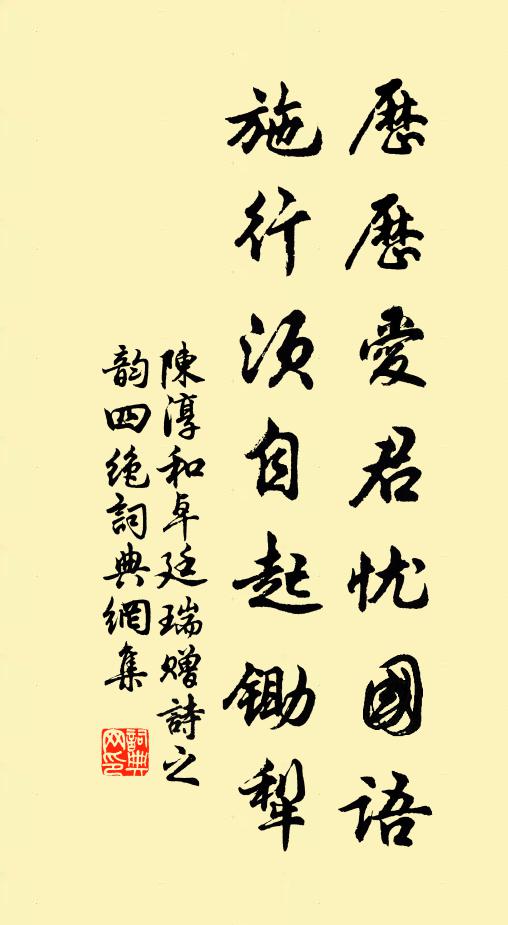 歷歷愛君忧國語
施行須自起鋤犁
陳淳和卓廷瑞贈詩之
韵四绝詞典網集
詞典
网印